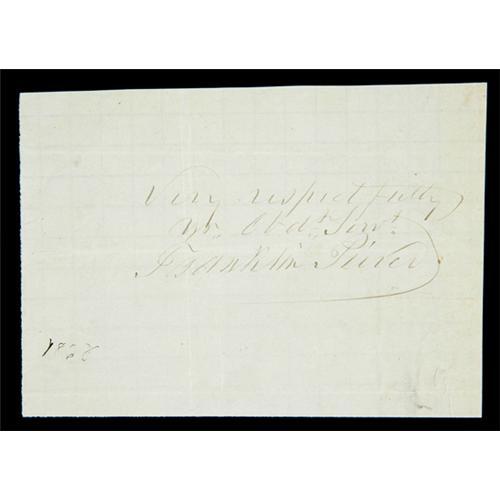 Very respectfully
Yr. Obdt. Servt.
Franklin Pierce